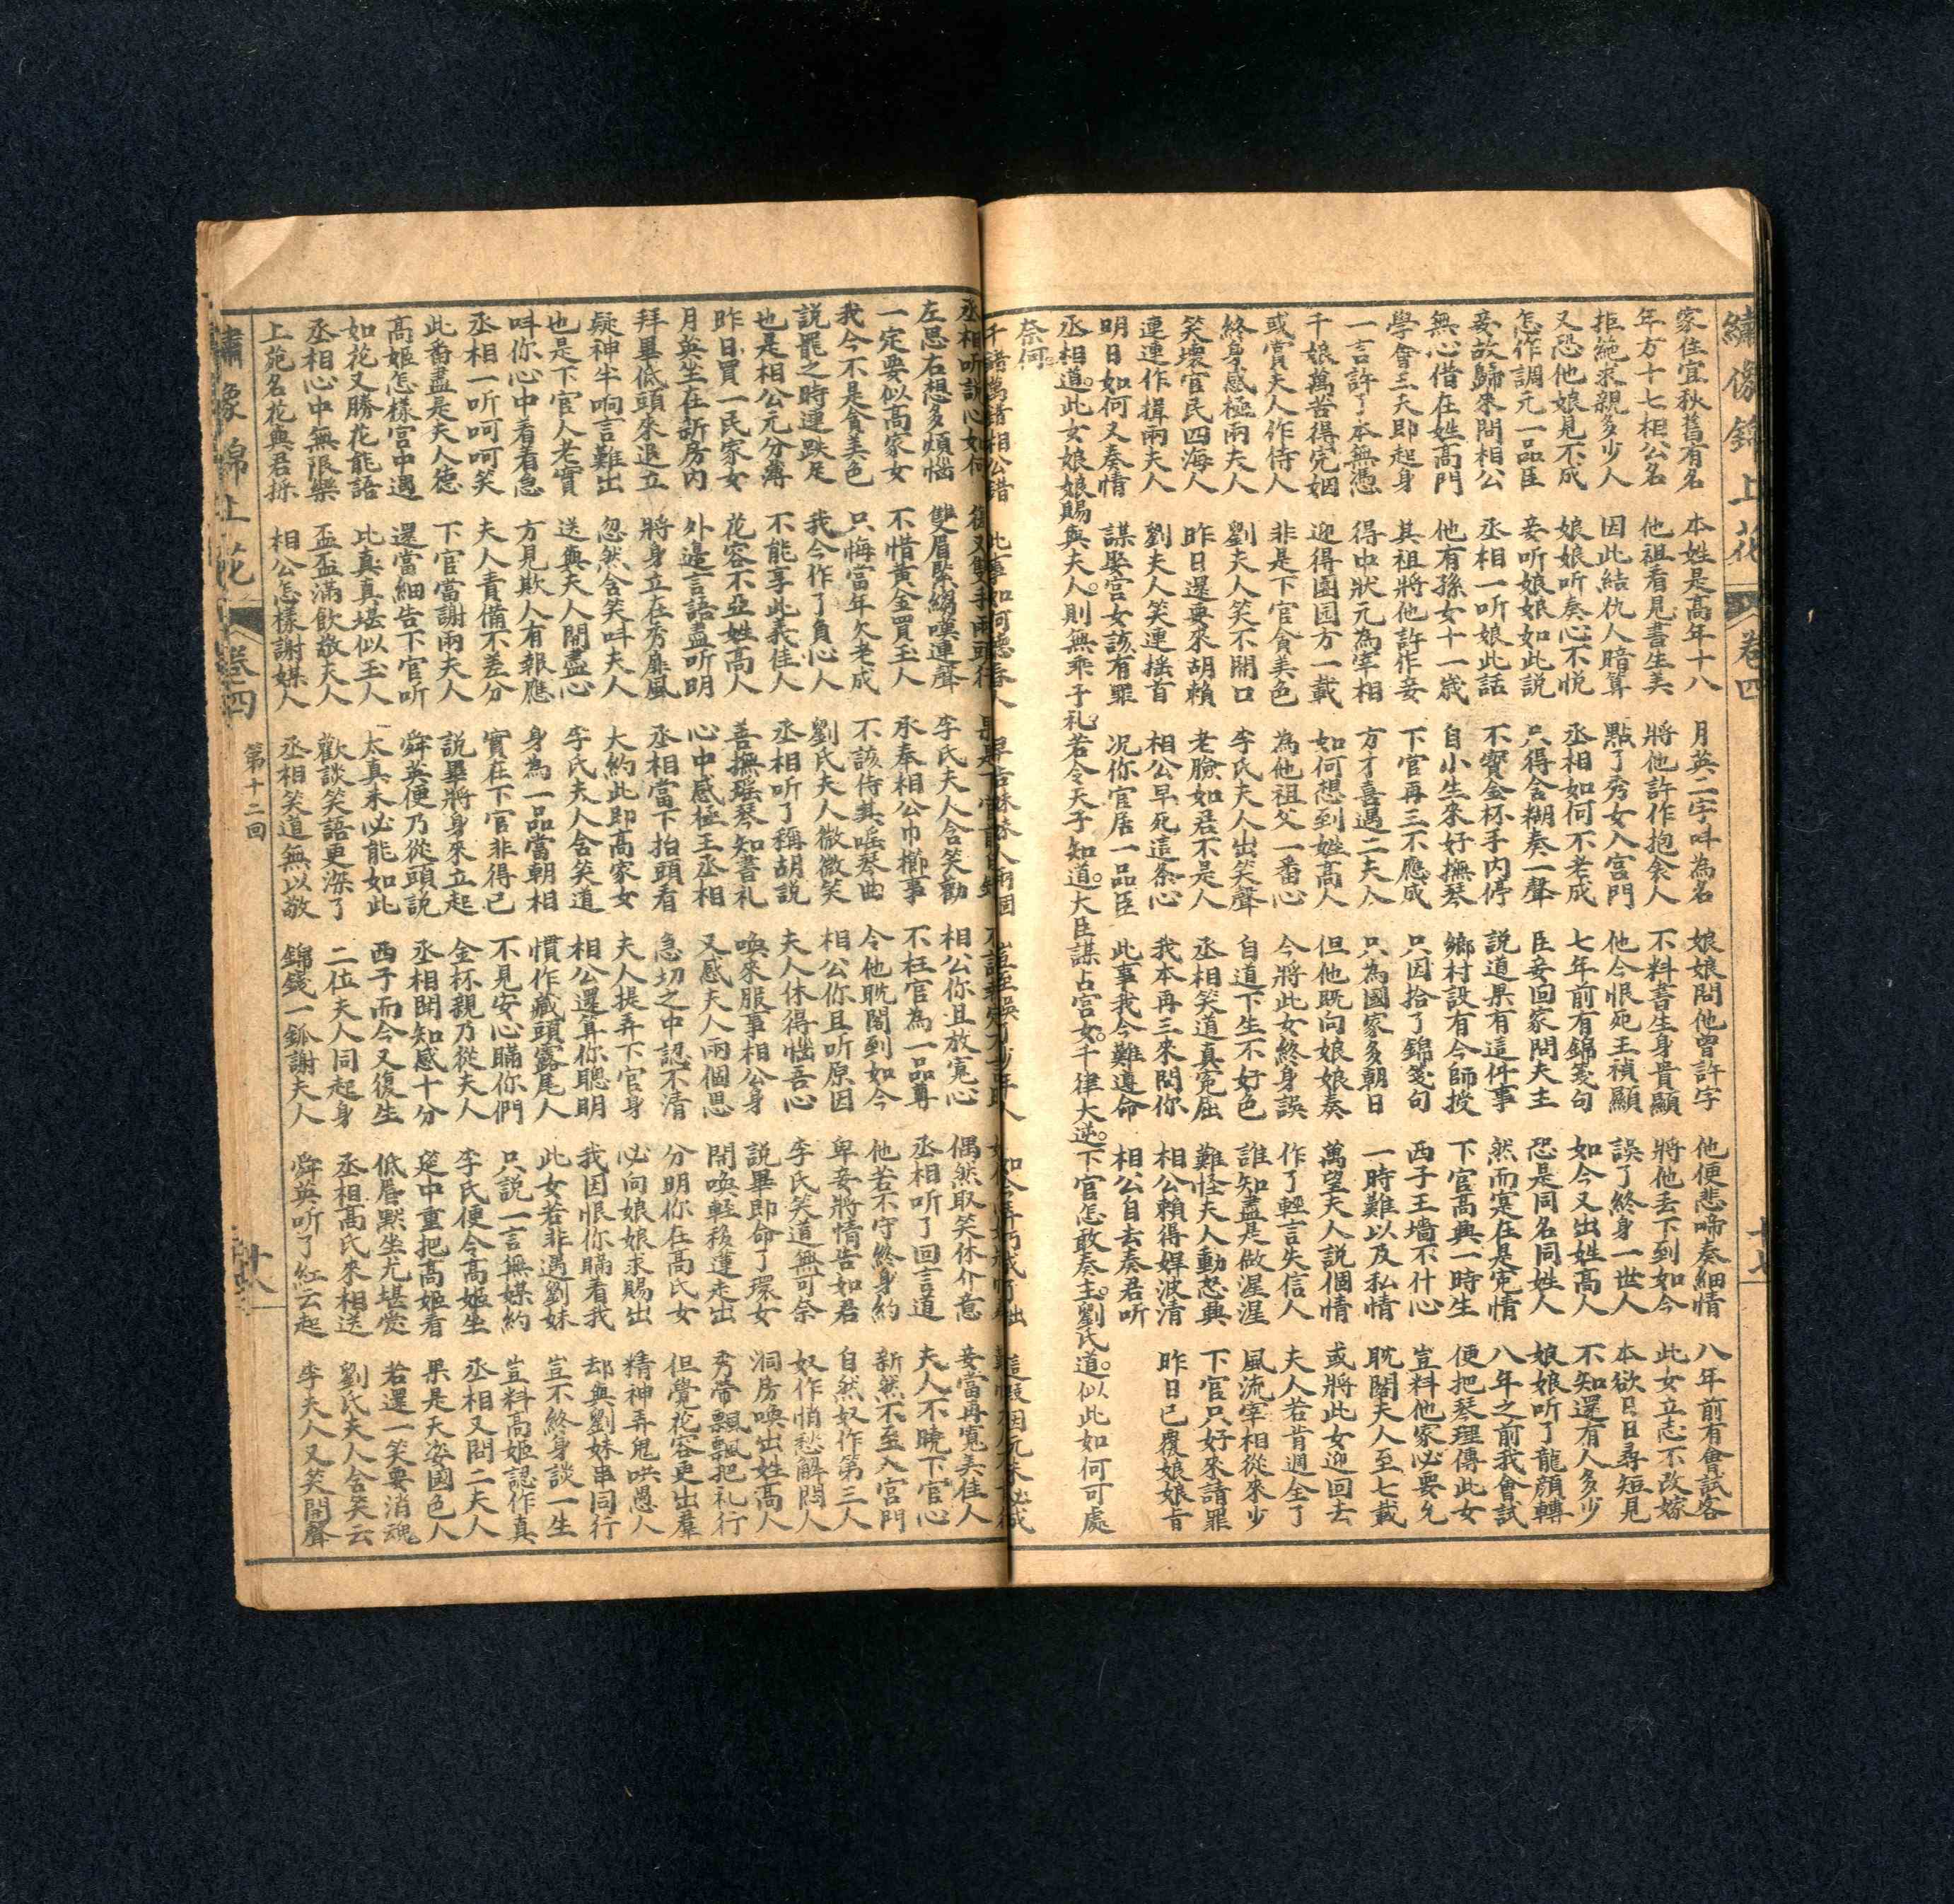 繡像錦上花 卷四 十七
家住宜秋舊有名 本姓是高年十八 月英二字呌為名 娘娘問他曾許字 他便悲啼奏細情 八年前有會試客
年方十七相公名 他祖看見書生美 將他許作抱衾人 不料書生身貴顯 將他丟下到如今 此女立志不改嫁
拒絶求親多少人 因此結仇人暗算 點了秀女入宮門 他今恨死王禎顯 誤了終身一世人 本欲日日尋短見
又恐他娘見不成 娘娘听奏心不悅 丞相如何不老成 七年前有錦箋句 如今又出姓高人 不知還有人多少
怎作調元一品臣 妾听娘娘如此說 只得含糊奏一聲 臣妾回家問夫主 恐是同名同姓人 娘娘听了龍顏轉
妾故歸來問相公 丞相一听娘此話 不覺金杯手內停 說道果有這件事 然而寔在是寃情 八年之前我會試
無心借在姓高門 他有孫女十一歲 自小生來好撫琴 鄉村設有今師授 下官高興一時生 便把琴理傳此女
學會三天即起身 其祖將他許作妾 下官再三不應成 只因拾了錦箋句 西子王墻不什心 豈料他家必要允
一言許了本無憑 得中狀元為宰相 方才喜遇二夫人 只為國家多朝日 一時難以及私情 耽閣夫人至七載
千娘萬苦得完姻 迎得團圓方一載 如何想到姓高人 但他既向娘娘奏 萬望夫人說個情 或將此女迎回去
或賞夫人作侍人 非是下官貪美色 為他祖父一番心 今將此女終身誤 作了輕言失信人 夫人若肯週全了
終身感極兩夫人 劉夫人笑不開口 李氏夫人出笑聲 自道下生不好色 誰知盡是做渥渥 風流宰相從來少
笑壞官民四海人 昨日還要來胡賴 老臉如君不是人 丞相笑道真寃屈 難怪夫人動怒興 下官只好來請罪
連連作揖兩夫人 劉夫人笑連搖首 相公早死這条心 我本再三來問你 相公賴得焊波清 昨日已覆娘娘旨
明日如何又奏情 謀娶宮女該有罪 况你官居一品臣 此事我今難遵命 相公自去奏君听
丞相道。此女娘娘賜與夫人。則無乖于礼。若令天子知道。大臣謀占宮女。千律大逆。下官怎敢奏主。劉氏道。似此如何可處
奈何
丞相听說心如何
左思右想多煩惱 雙眉緊縐嘆連聲 李氏夫人含笑勸 相公你且放寬心 偶然取笑休介意 妾當再覓美佳人
一定要似高家女 不惜黃金買玉人 承奉相公巾櫛事 不枉官為一品尊 丞相听了回言道 夫人不曉下官心
我今不是貪美色 只悔當年欠老成 不該侍其瑶琴曲 令他耽閣到如今 他若不守終身約 新然不至入宮門
說罷之時連跌足 我今作了負心人 劉氏夫人微微笑 相公你且听原因 卑妾將情告如君 自然奴作第三人
也是相公元分薄 不能享此義佳人 丞相听了稱胡說 夫人休得惱吾心 李氏笑道無可奈 奴作悄愁解悶人
昨日買一民家女 花容不亞姓高人 善撫瑶琴知書礼 喚來服事相公身 說畢即命了環女 洞房喚出姓高人
月英坐在訢房內 外邊言語盡听明 心中感極王丞相 又感夫人兩個思 開喚輕移蓮走出 秀帶飄飄把礼行
拜畢低頭來退立 將身立在秀廉風 丞相當下抬頭看 急切之中認不清 分明你在高氏女 但覺花容更出羣
疑神半响言難出 忽然含笑呌夫人 大約此即高家女 夫人提弄下官身 必向娘娘求賜出 精神弄鬼哄愚人
也是下官人老實 送與夫人開盡心 李氏夫人含笑道 相公還算你聰明 我因恨你瞞着我 却與劉妹串同行
呌你心中看着急 方見欺人有報應 身為一品當朝相 慣作藏頭露尾人 此女若非遇劉妹 豈不終身談一生
丞相一听呵呵笑 夫人責備不差分 實在下官非得已 不見安心瞞你們 只說一言無媒約 豈料高姬認作真
此番盡是夫人德 下官當謝兩夫人 說畢將身來立起 金杯親乃從夫人 李氏便令高姬坐 丞相又問二夫人
高姬怎樣宮中遇 還當細告下官听 舜英便乃從頭說 丞相聞知感十分 筵中重把高姬看 果是天姿國色人
如花又勝花能語 此真真堪似玉人 太真未必能如此 西子而今又復生 低唇默坐尤堪賞 若還一笑要消魂
丞相心中無限樂 盃盃滿飲敬夫人 歡談笑語更深了 二位夫人同起身 丞相高氏來相送 劉氏夫人含笑云
上苑名花與君採 相公怎樣謝媒人 丞相笑道無以敬 錦錢一瓠謝夫人 舜英听了紅云起 李夫人又笑開聲
繡像錦上花 卷四 第十二回 十八